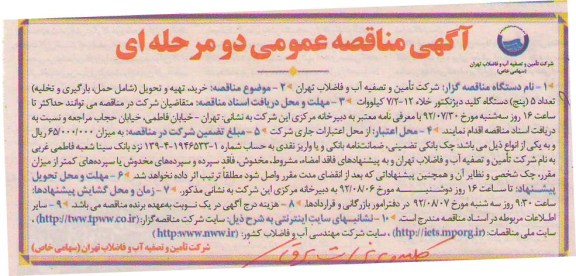 آگهی مناقصه عمومی دو مرحله ای
شرکت تأمین و تصفیه آب و فاضلاب تهران
(سهامی خاص)
۱- نام دستگاه مناقصه گزار: شرکت تأمین و تصفیه آب و فاضلاب تهران ۲- موضوع مناقصه: خرید، تهیه و تحویل (شامل حمل، بارگیری و تخلیه)
تعداد ۵ (پنج) دستگاه کلید دیژنکتور خلاء ۷/۲-۱۲ کیلووات ۳- مهلت و محل دریافت اسناد مناقصه: متقاضیان شرکت در مناقصه می توانند حداکثر تا
ساعت ۱۶ روز سه‌شنبه مورخ ۹۲/۰۷/۳۰ با معرفی نامه معتبر به دبیرخانه مرکزی این شرکت به نشانی: تهران - خیابان فاطمی، خیابان حجاب مراجعه و نسبت به
دریافت اسناد مناقصه اقدام نمایند. ۴- محل اعتبار: از محل اعتبارات جاری شرکت ۵- مبلغ تضمین شرکت در مناقصه: به میزان ۶۵/۰۰۰/۰۰۰ ریال
و به یکی از انواع ذیل می باشد: چک بانکی تضمینی، ضمانتنامه بانکی و یا واریز نقدی به حساب شماره ۱-۱۹۴۶۵۳۳-۴-۱۳۹ نزد بانک سینا شعبه فاطمی غربی
به نام شرکت تأمین و تصفیه آب و فاضلاب تهران و به پیشنهادهای فاقد امضاء، مشروط، مخدوش، فاقد سپرده و سپرده‌های مخدوش یا سپرده‌های کمتر از میزان
مقرر، چک شخصی و نظایر آن و همچنین پیشنهاداتی که بعد از انقضای مدت مقرر واصل شود مطلقاً ترتیب اثر داده نخواهد شد. ۶- مهلت و محل تحویل
پیشنهاد: تا ساعت ۱۶ روز دوشنبه مورخ ۹۲/۰۸/۰۶ به دبیرخانه مرکزی این شرکت به نشانی مذکور. ۷- زمان و محل گشایش پیشنهادها:
ساعت ۹:۳۰ روز سه شنبه مورخ ۹۲/۰۸/۰۷ در دفترامور بازرگانی و قراردادها. ۸- هزینه درج آگهی در یک نوبت به‌عهده برنده مناقصه می باشد. ۹- سایر
اطلاعات مربوطه در اسناد مناقصه مندرج است. ۱۰- نشانیهای سایت اینترنتی به شرح ذیل: سایت شرکت مناقصه‌گزار: (http://tww.tpww.co.ir)،
سایت ملی مناقصات: (http://iets.mporg.ir) سایت شرکت مهندسی آب و فاضلاب کشور: (http:www.nww.ir)
شرکت تأمین و تصفیه آب و فاضلاب تهران (سهامی خاص)